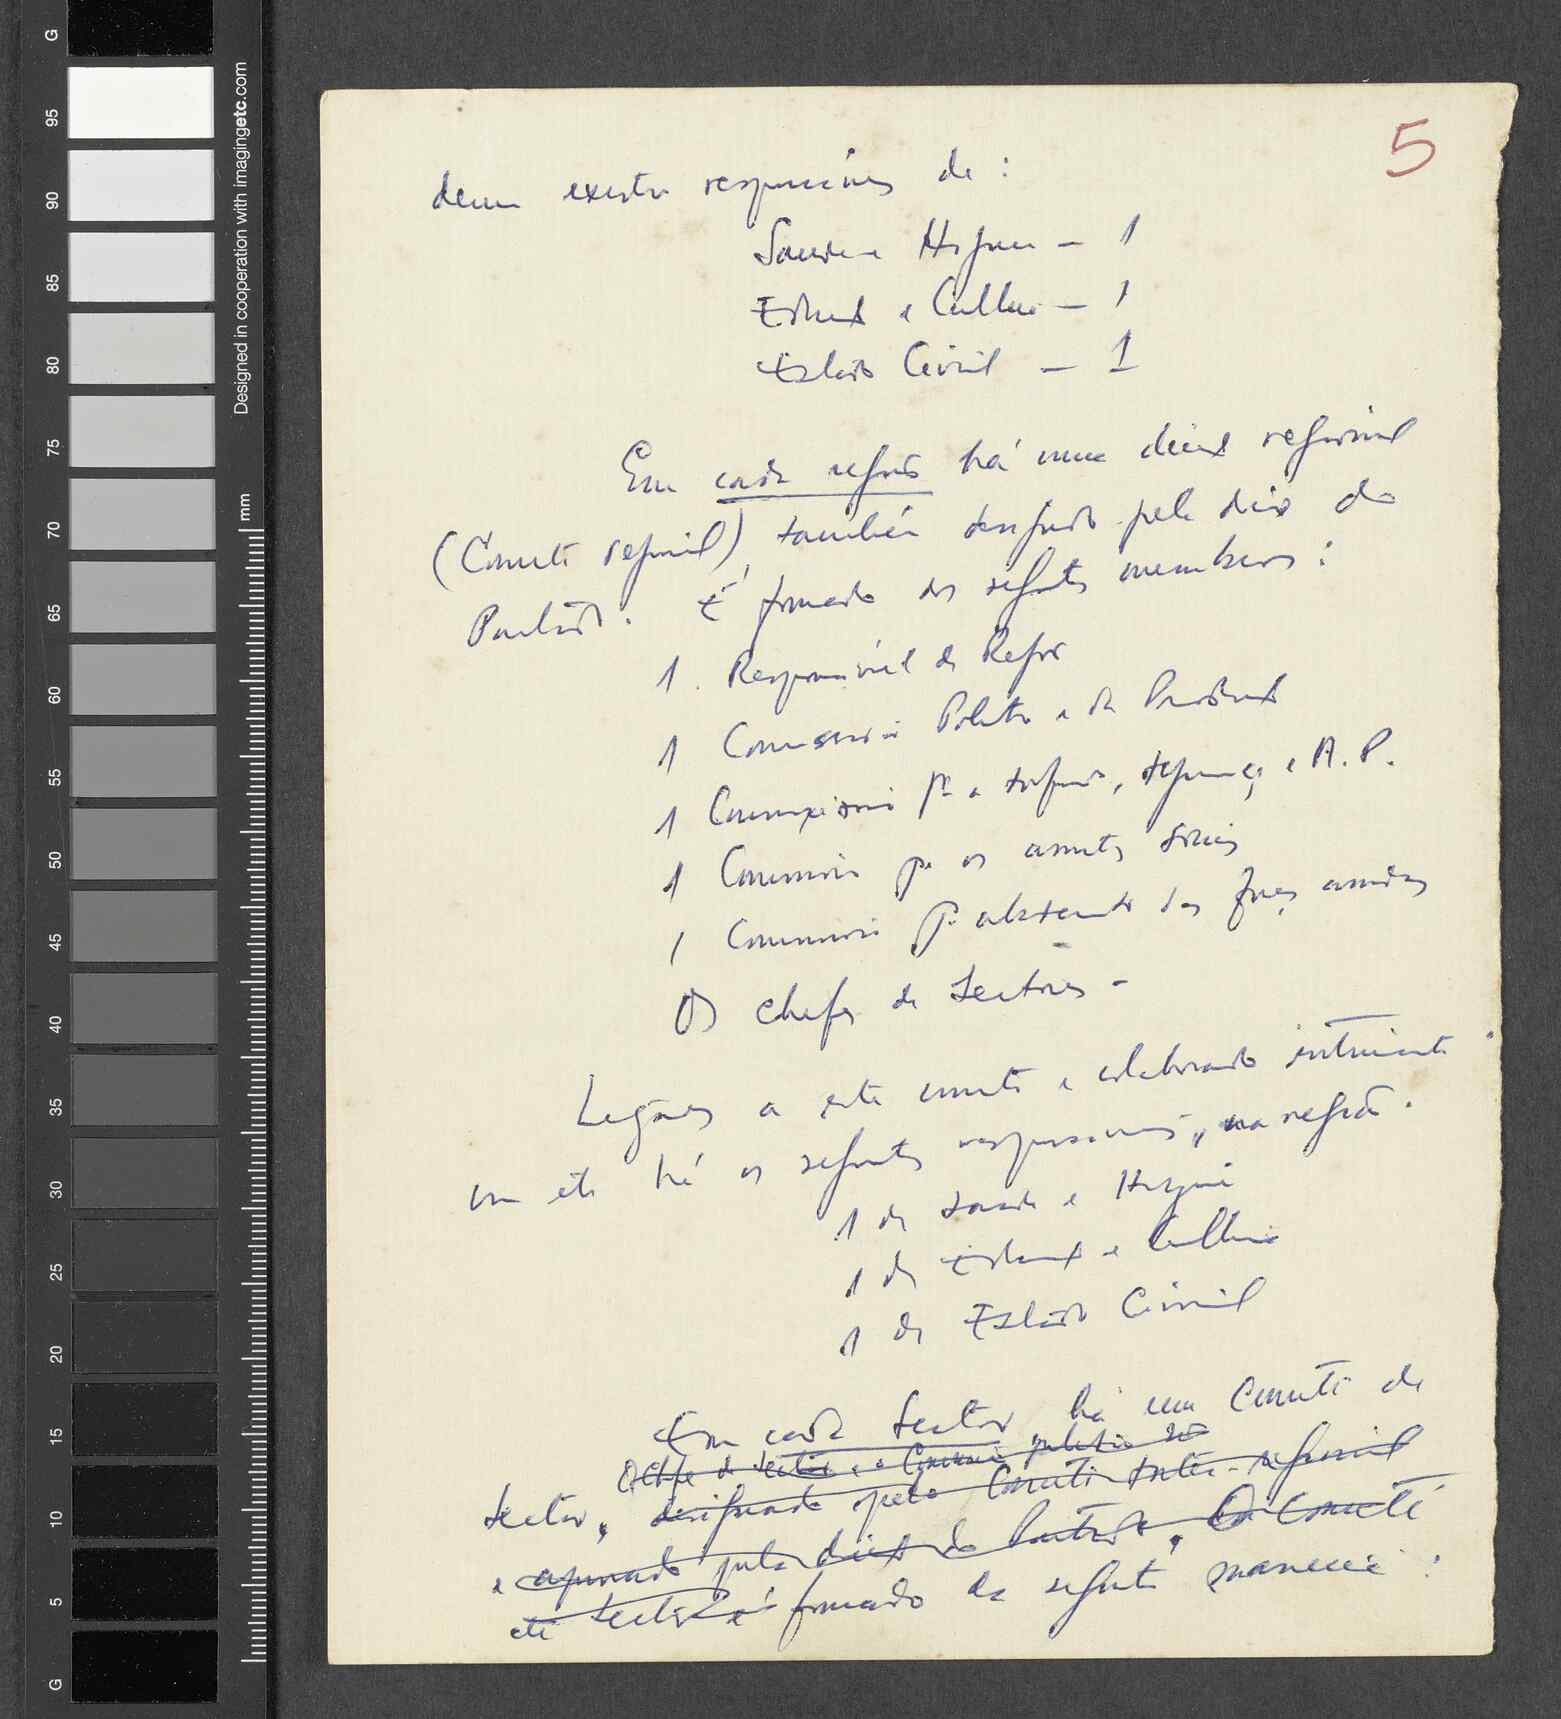 5
devem existir responsáveis de :
Saúde e Higiene — 1
e Cultura — 1
Estado Civil — 1
Em cada região há uma regional
(Comité regional), também designado pela do
Partido. É formado dos seguintes membros :
1 . Responsável da Região
1 Comissário Político e da Produção
1 Comissário pª a defesa, segurança e A. P.
1 Comissário pª os assuntos sociais
1 Comissário pª abastecimento das forças armadas
Os chefes de Sectores -
Ligados a este comité e colaborando intimamente
com ele há os seguintes responsáveis, na região .
1 de Saúde e Higiene
1 de e Cultura
1 de Estado Civil
Em cada Sector há um Comité de
O Chefe de Sector e o Comissário político são
Sector, designado pelo Comité Inter-regional
e aprovado pela do Partido, O Comité
de Sector é formado da seguinte maneira :
G
95
90
85
80
75
70
65
60
55
50
45
40
35
30
25
20
15
10
5
G
Designed in cooperation with imagingetc.com
mm